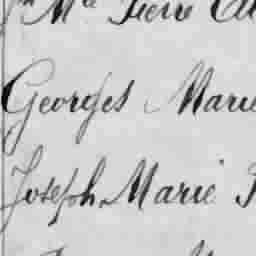 Mª Pierre
Georges Marie
Joseph Marie